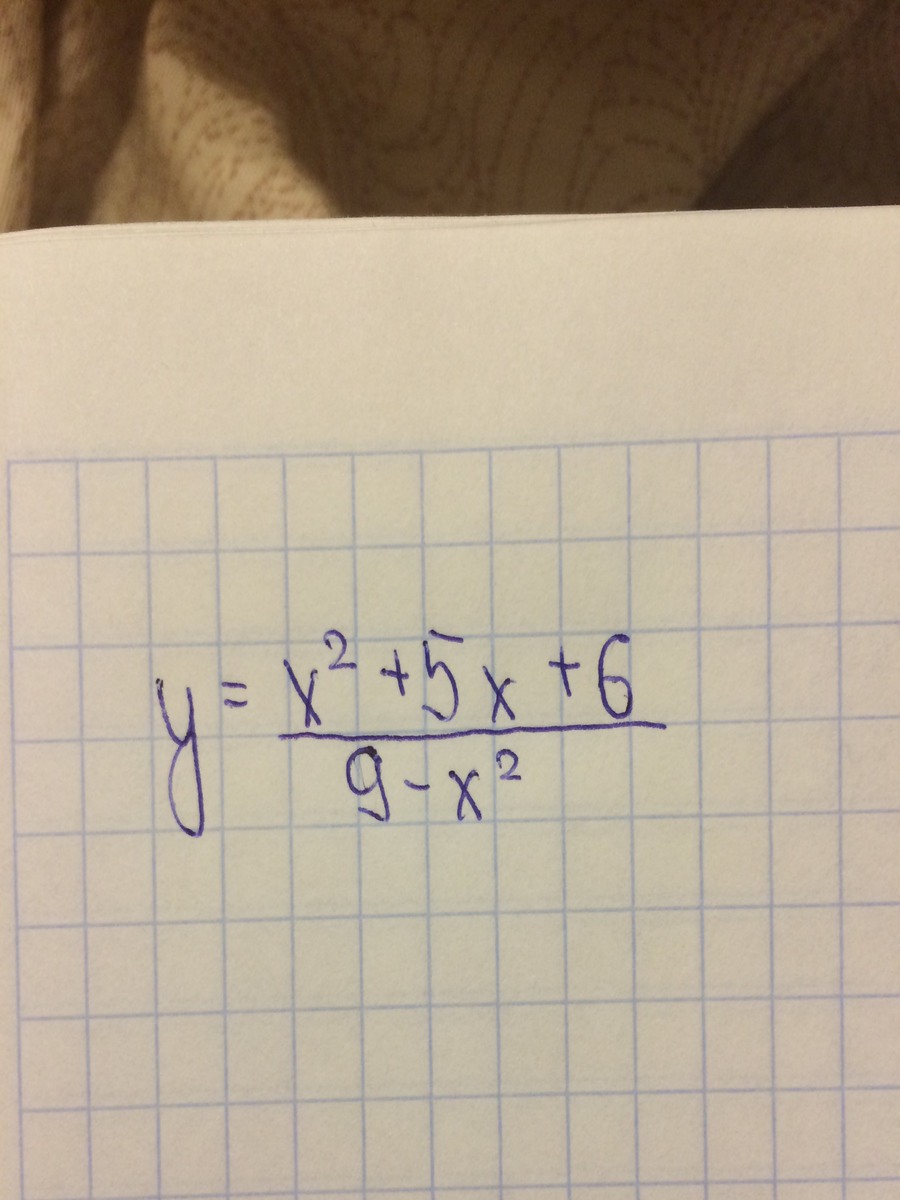 y = x² + 5x + 6
9 - x²